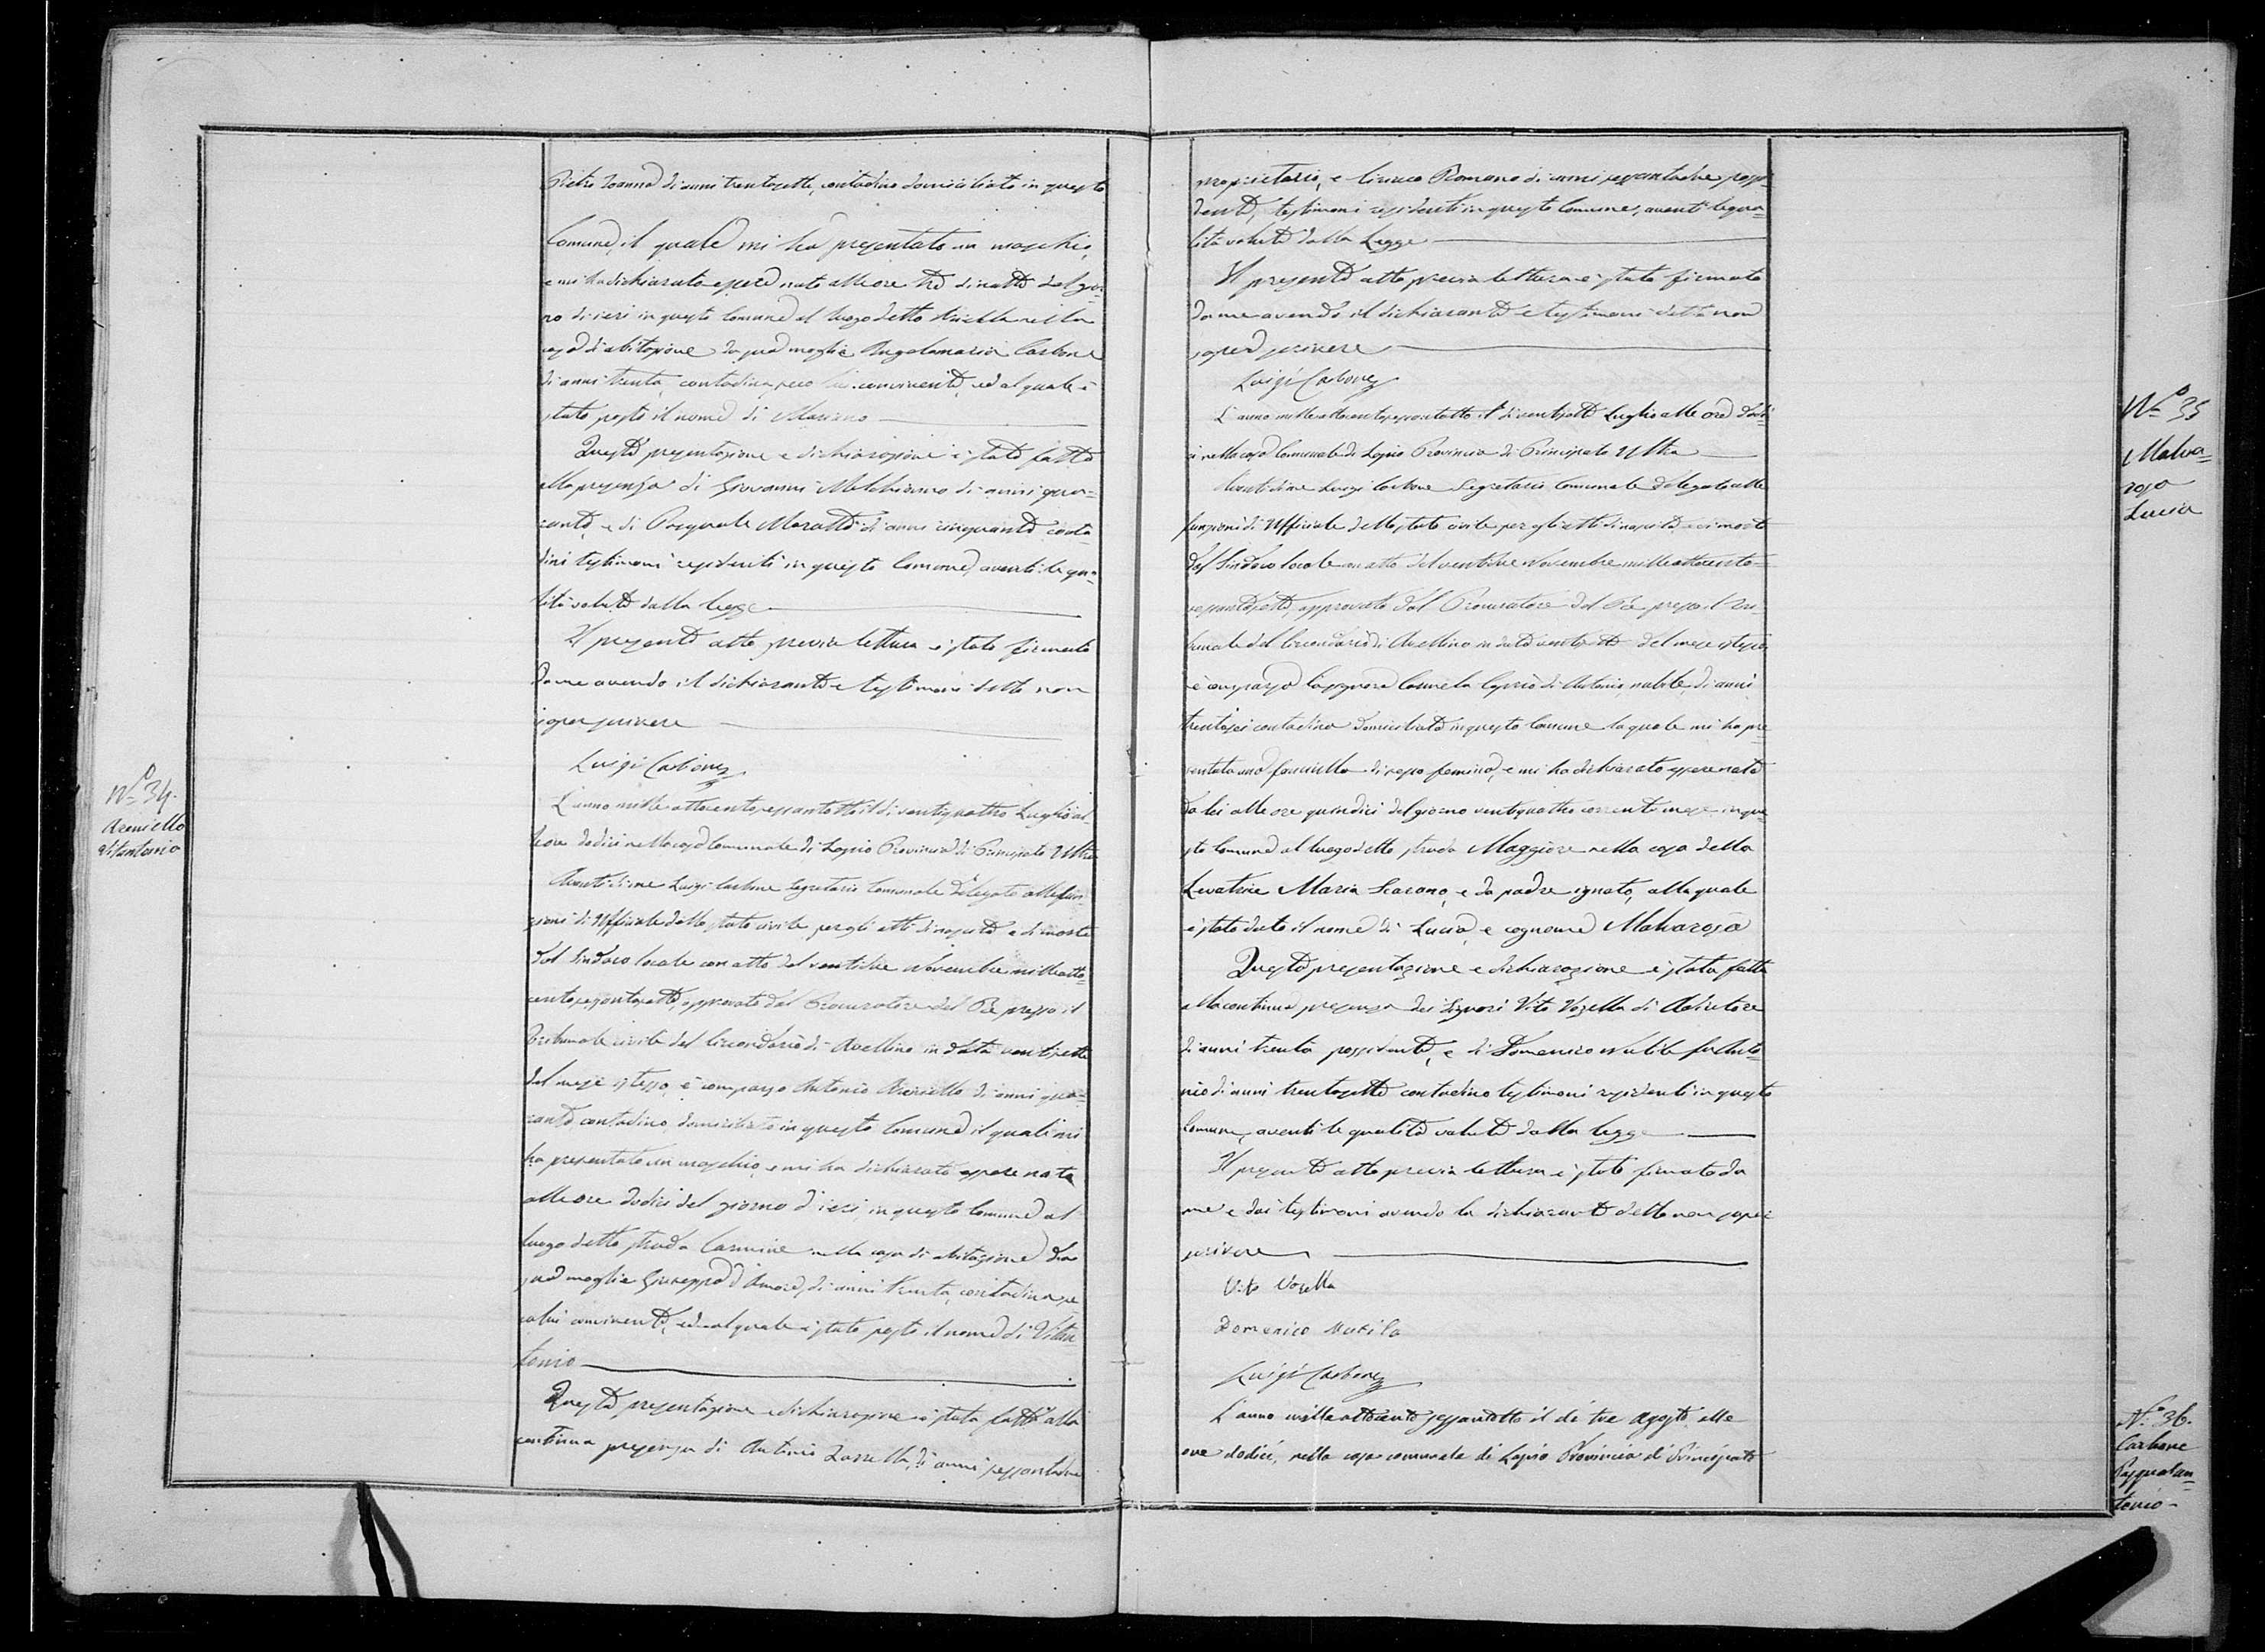 Pietro Ioanna di anni trentasette, contadino domiciliato in questo
Comune, il quale mi ha presentato un maschio,
e mi ha dichiarato essere nato alle ore tre di notte del gior-
no di ieri in questo Comune al luogo detto nella
casa di abitazione da sua moglie Angelamaria Carbone
di anni trenta, contadina seco lui convivente, ed al quale è
stato posto il nome di Mariano
Questa presentazione e dichiarazione è stata fatta
alla presenza di Giovanni Melchionno di anni qua-
ranta, e di Pasquale Moratto di anni cinquanta conta
dini testimoni residenti in questo Comune, aventi le qua-
lità volute dalla legge
Il presente atto previa lettura è stato firmato
da me avendo il dichiarante e testimoni detto non
saper scrivere
Luigi Carbone
N.º 34.
Areniello
Vitantonio
L'anno milleottocentosessantotto il dì ventiquattro Luglio al-
le ore dodici nella casa Comunale di Lapio Provincia di Principato Ultra
Avanti di me Luigi Carbone Segretario Comunale delegato alle fun-
zioni di Uffiziale dello stato civile per gli atti di nascita e di morte
dal Sindaco locale con atto del ventidue Novembre milleotto-
centosessantasette, approvato dal Procuratore del Re presso il
Tribunale civile del Circondario di Avellino in data ventisette
del mese istesso, è comparso Antonio Areniello di anni qua-
ranta contadino, domiciliato in questo Comune il quale mi
ha presentato un maschio, e mi ha dichiarato essere nato
alle ore dodici del giorno d'ieri, in questo Comune al
luogo detto strada Carmine nella casa di abitazione da
sua moglie Giuseppa d'Amore, di anni trenta, contadina se
co lui convivente, ed al quale è stato posto il nome di Vitan
tonio
Questa presentazione e dichiarazione è stata fatta alla
continua presenza di Antonio Zarrella, di anni sessantadue
proprietario, e Ciriaco Romano di anni sessantadue possi-
dente, testimoni residenti in questo Comune, aventi le qua-
lità volute dalla Legge
Il presente atto previa lettura è stato firmato
da me avendo il dichiarante e testimoni detto non
saper scrivere
Luigi Carbone
N.º 35
Malva-
rosa
Lucia
L'anno milleottocentosessantotto il dì ventisette Luglio alle ore dodi-
ci nella casa Comunale di Lapio Provincia di Principato Ultra
Avanti di me Luigi Carbone Segretario Comunale delegato alle
funzioni di Uffiziale dello stato civile per gli atti di nascita e di morte
dal Sindaco locale con atto del ventidue Novembre milleottocento-
sessantasette, approvato dal Procuratore del Re presso il Tri-
bunale del Circondario di Avellino in data ventisette del mese istesso,
è comparsa la signora Carmela Caprio di Antonio, nubile, di anni
trentasei contadina domiciliata in questo Comune la quale mi ha pre
sentata una fanciulla di sesso femineo, e mi ha dichiarato essere nata
da lei alle ore quindici del giorno ventiquattro corrente mese in que-
sto Comune al luogo detto strada Maggiore nella casa della
Levatrice Maria Scarano, e da padre ignoto, alla quale
è stato dato il nome di Lucia, e cognome Malvarosa
Questa presentazione e dichiarazione è stata fatta
alla continua presenza dei Signori Vito Vozella di Adiutore
di anni trenta possidente, e di Domenico Nutile fu Anto-
nio di anni trentasette contadino testimoni residenti in questo
Comune, aventi le qualità volute dalla legge
Il presente atto previa lettura è stato firmato da
me e dai testimoni avendo la dichiarante detto non saper
scrivere
Vito Vozella
Domenico Nutile
Luigi Carbone
N.º 36.
Carbone
Pasqualan-
tonio-
L'anno milleottocento sessantotto il dì tre Agosto, alle
ore dodici, nella casa comunale di Lapio Provincia di Principato